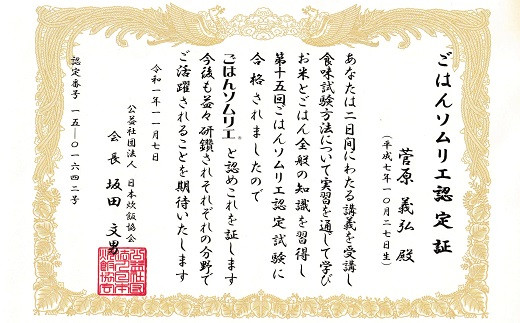 ごはんソムリエ認定証
菅原 義弘 殿
（平成七年一〇月二七日生）
あなたは二日間にわたる講義を受講し
食味試験方法について実習を通して学び
お米とごはん全般の知識を習得し
第十五回ごはんソムリエ認定試験に
合格されましたので
ごはんソムリエ®と認めこれを証します
今後も益々研鑽されそれぞれの分野で
ご活躍されることを期待いたします
令和一年一一月七日
公益社団法人 日本炊飯協会
会長 坂田 文男
認定番号 一五‐〇一六四二号